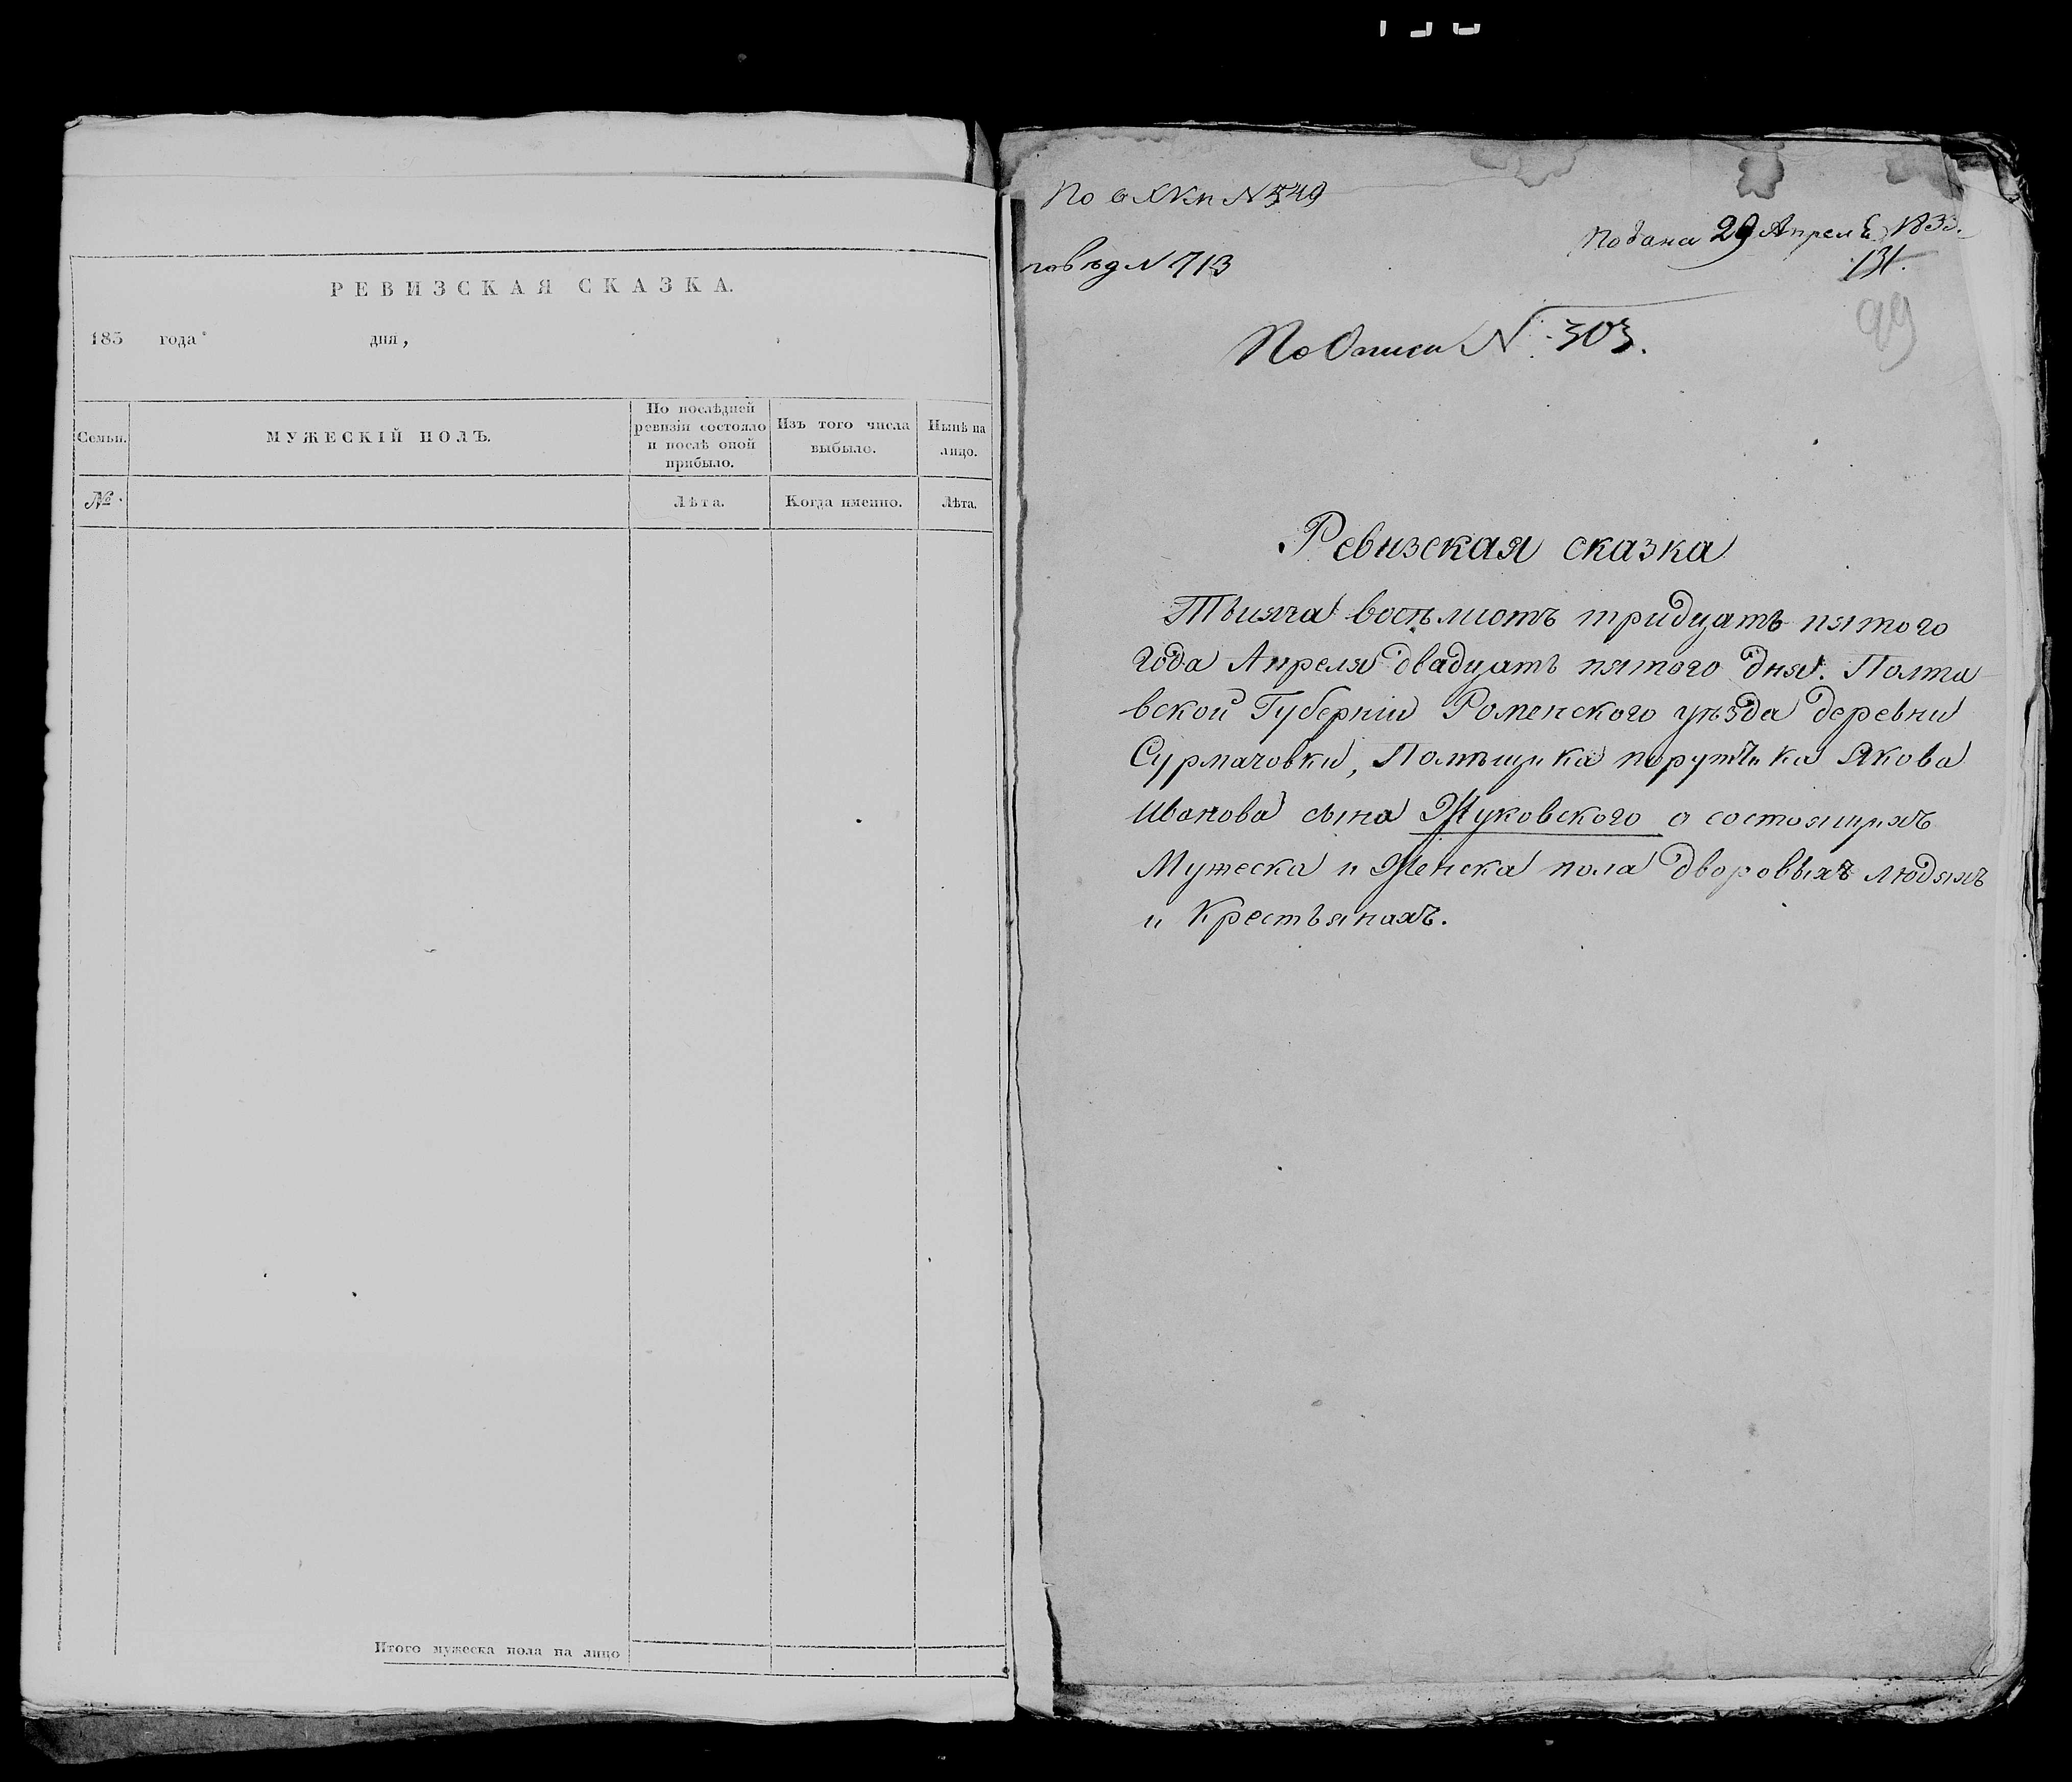 РЕВИЗСКАЯ СКАЗКА.
183 года дня,
Семьи.
МУЖЕСКІЙ ПОЛЪ.
По послѣдней
ревизіи состояло
и послѣ оной
прибыло.
Изъ того числа
выбыло.
Нынѣ на
лицо.
№.
Лѣта.
Когда именно.
Лѣта.
Итого мужеска пола на лицо
№ 549
Подана 29 Апреля
131.
№ 713
99
По Описи N. 303.
Ревизская сказка
Тысяча восѣмсотъ тридцать пятого
года Апреля двадцать пятого дня. Полта
вской Губерніи Роменского уѣзда деревни
Сурмачовки, Помѣщика порутчика Якова
Иванова сына Жуковского о состоящихъ
Мужеска и Женска пола дворовыхъ людяхъ
и Крестьянахъ.